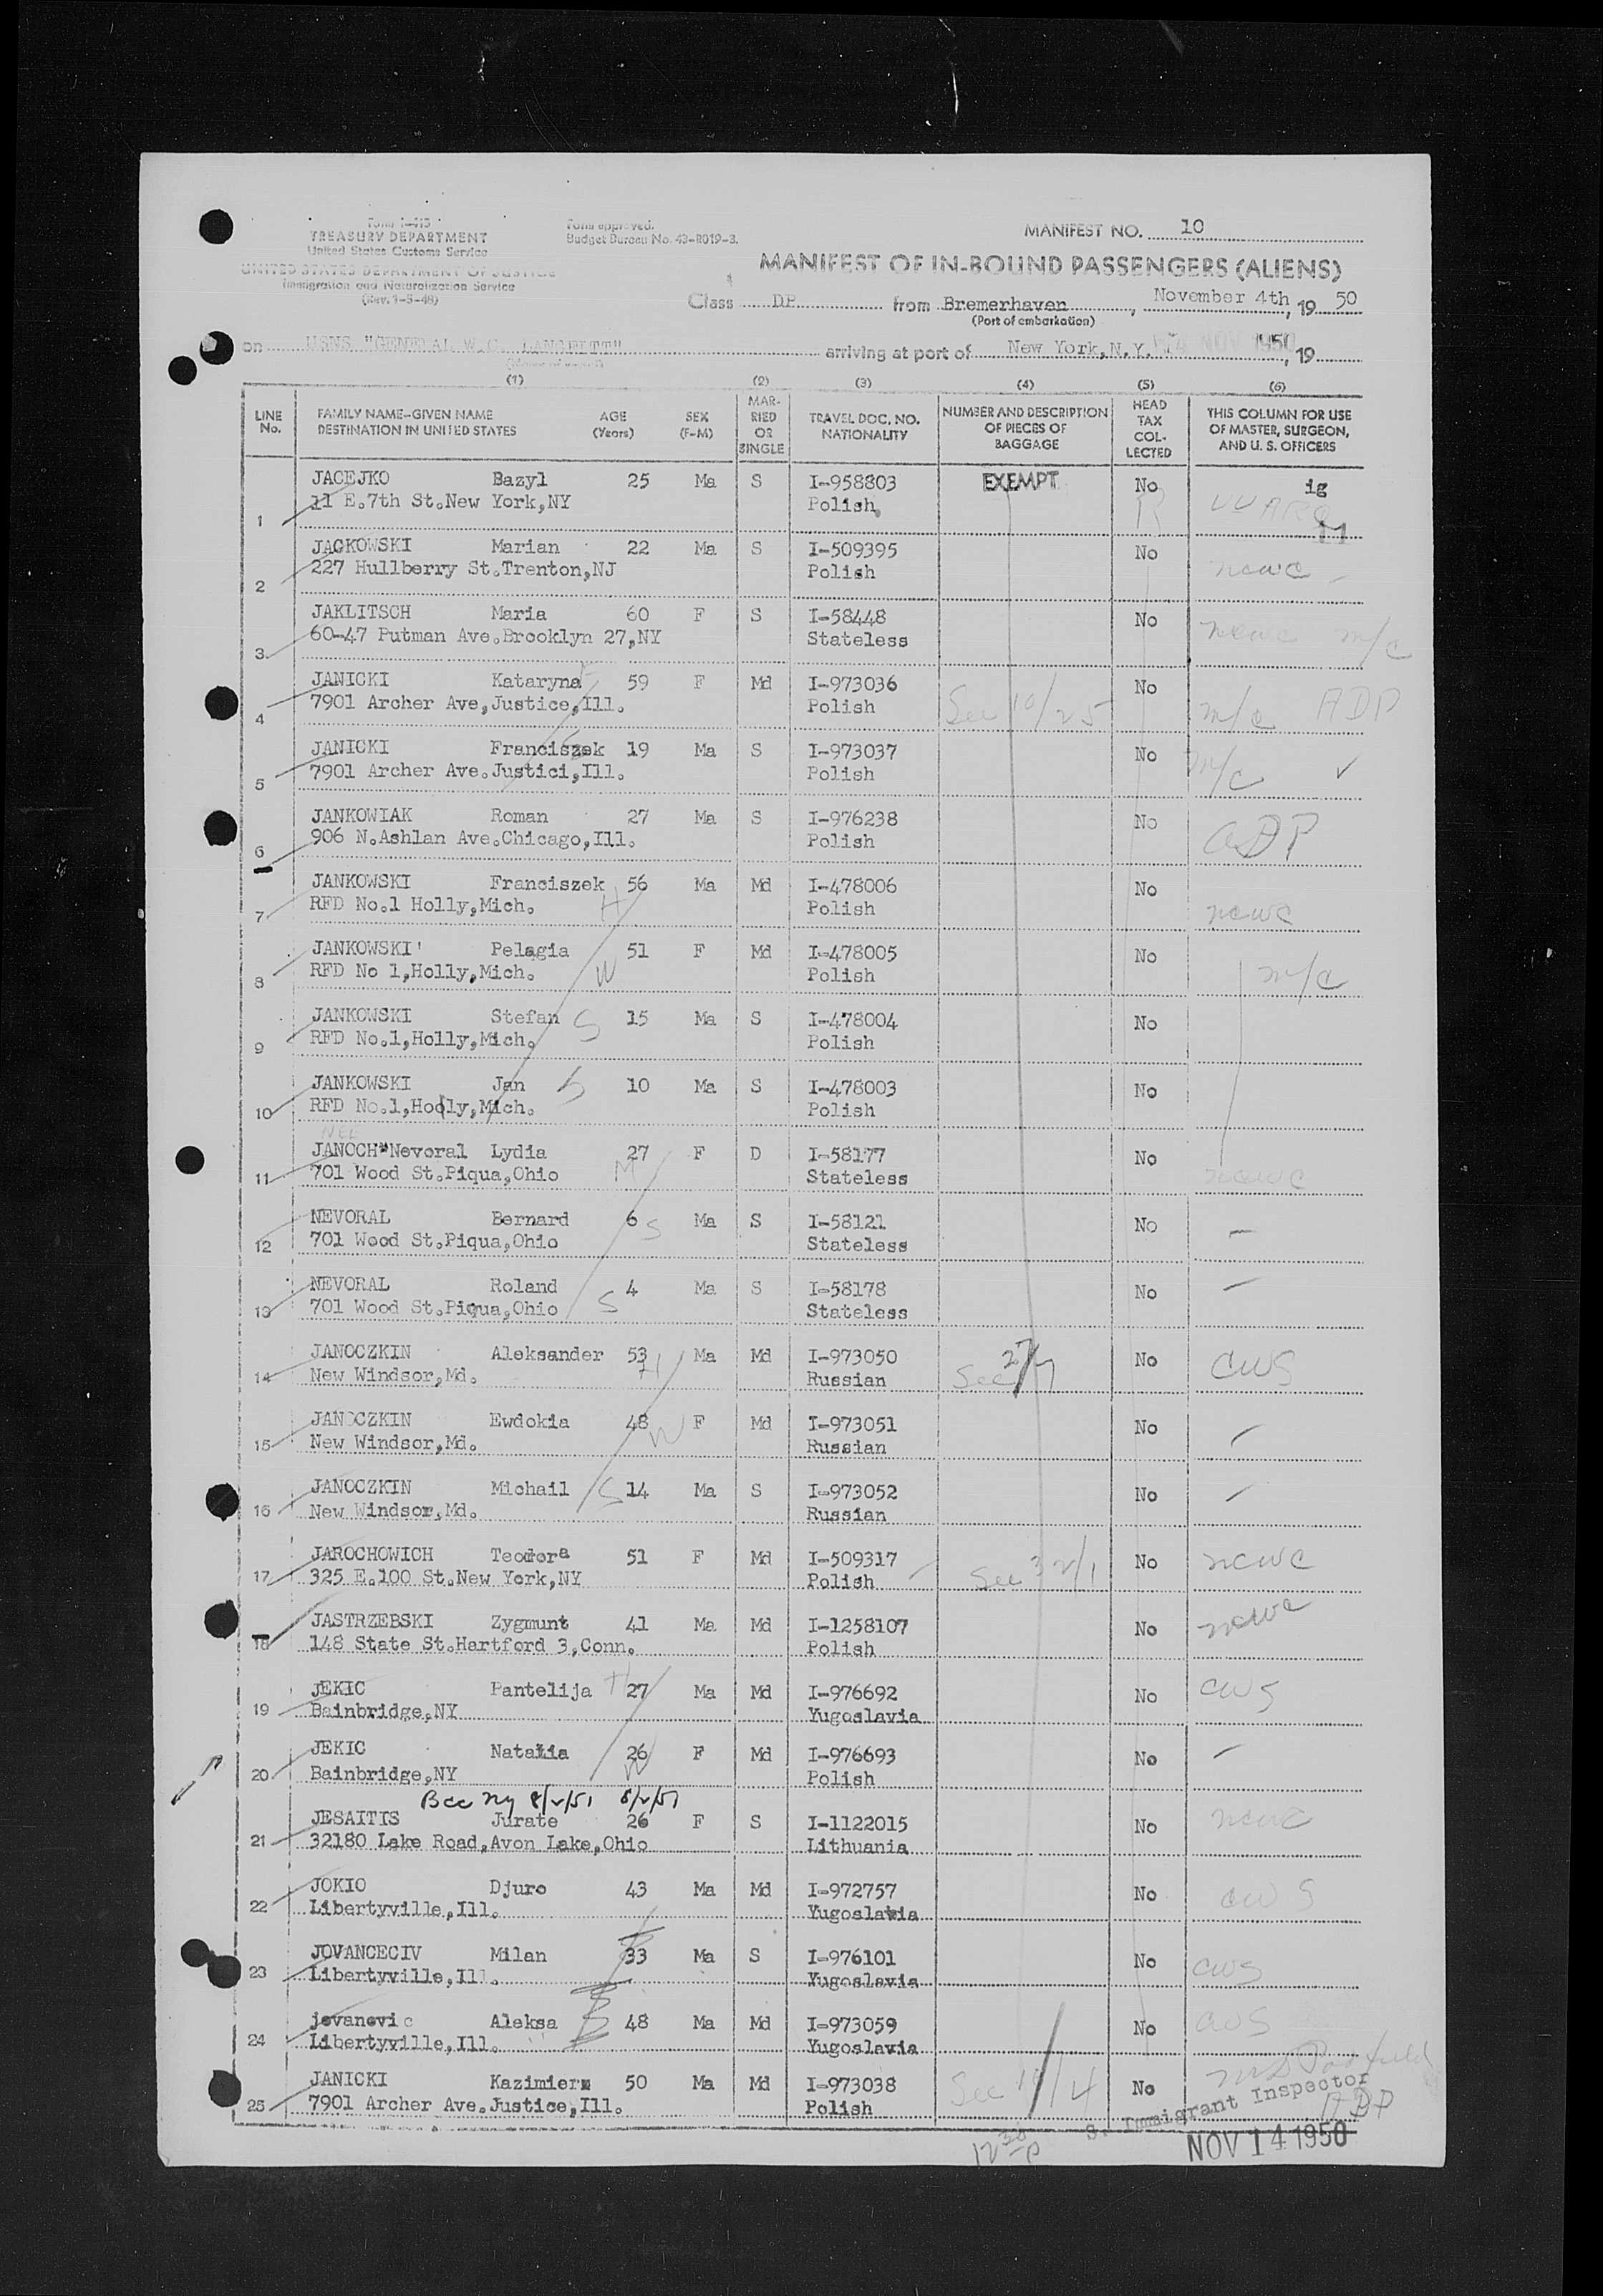 Form I-415
TREASURY DEPARTMENT
United States Customs Service
UNITED STATES DEPARTMENT OF JUSTICE
Immigration and Naturalization Service
(Rev. 1-5-48)
Form approved.
Budget Bureau No. 43-R019-3.
MANIFEST NO. 10
MANIFEST OF IN-BOUND PASSENGERS (ALIENS)
Class DP from Bremerhaven, November 4th, 19 50
(Port of embarkation)
on USNS "GENERAL W.C. LANGFITT" arriving at port of New York, N.Y. 14 NOV 1950, 19
(Name of vessel)
(1) (2) (3) (4) (5) (6)
LINE No. FAMILY NAME—GIVEN NAME DESTINATION IN UNITED STATES AGE (Years) SEX (F-M) MARRIED OR SINGLE TRAVEL DOC. NO. NATIONALITY NUMBER AND DESCRIPTION OF PIECES OF BAGGAGE HEAD TAX COLLECTED THIS COLUMN FOR USE OF MASTER, SURGEON, AND U. S. OFFICERS
JACEJKO Bazyl 25 Ma S I-958803 EXEMPT No ig
1 11 E.7th St.New York,NY Polish 11
JACKOWSKI Marian 22 Ma S I-509395 No
2 227 Hullberry St.Trenton,NJ Polish ncwc
JAKLITSCH Maria 60 F S I-58448 No
3 60-47 Putman Ave.Brooklyn 27,NY Stateless ncwc m/c
JANICKI Kataryna 59 F Md I-973036 No
4 7901 Archer Ave,Justice,Ill. Polish See 10/25 m/c ADP
JANICKI Franciszek 19 Ma S I-973037 No
5 7901 Archer Ave.Justici,Ill. Polish m/c ✓
JANKOWIAK Roman 27 Ma S I-976238 No
6 906 N.Ashlan Ave.Chicago,Ill. Polish ADP
JANKOWSKI Franciszek 56 Ma Md I-478006 No
7 RFD No.1 Holly,Mich. H Polish ncwc
JANKOWSKI' Pelagia 51 F Md I-478005 No
8 RFD No 1,Holly,Mich. W Polish m/c
JANKOWSKI Stefan S 15 Ma S I-478004 No
9 RFD No.1,Holly,Mich. Polish
JANKOWSKI Jan S 10 Ma S I-478003 No
10 RFD No.1,Holly,Mich. Polish
NEE
JANOCH Nevoral Lydia 27 F D I-58177 No
11 701 Wood St.Piqua,Ohio M Stateless ncwc
NEVORAL Bernard 6 S Ma S I-58121 No
12 701 Wood St.Piqua,Ohio Stateless —
NEVORAL Roland 4 Ma S I-58178 No —
13 701 Wood St.Piqua,Ohio S Stateless
JANOCZKIN Aleksander 53 H Ma Md I-973050 No
14 New Windsor,Md. Russian See 27/7 CWS
JANOCZKIN Ewdokia 48 W F Md I-973051 No
15 New Windsor,Md. Russian —
JANOCZKIN Michail S 14 Ma S I-973052 No —
16 New Windsor,Md. Russian
JAROCHOWICH Teodora 51 F Md I-509317 No ncwc
17 325 E.100 St.New York,NY Polish See 32/1
JASTRZEBSKI Zygmunt 41 Ma Md I-1258107 No ncwc
18 148 State St.Hartford 3,Conn. Polish
JEKIC Pantelija H 27 Ma Md I-976692 No CWS
19 Bainbridge,NY Yugoslavia
JEKIC Natalia 26 F Md I-976693 No —
20 Bainbridge,NY W Polish
JESAITIS Jurate 26 F S I-1122015 No ncwc
21 32180 Lake Road,Avon Lake,Ohio Lithuania
JOKIO Djuro 43 Ma Md I-972757 No CWS
22 Libertyville,Ill. Yugoslavia
JOVANCECIV Milan 33 Ma S I-976101 No CWS
23 Libertyville,Ill. Yugoslavia
jovanovic Aleksa 48 Ma Md I-973059 No CWS
24 Libertyville,Ill. Yugoslavia
JANICKI Kazimierz 50 Ma Md I-973038 No
25 7901 Archer Ave.Justice,Ill. Polish See 10/4 ADP
S. Immigrant Inspector
NOV 14 1950